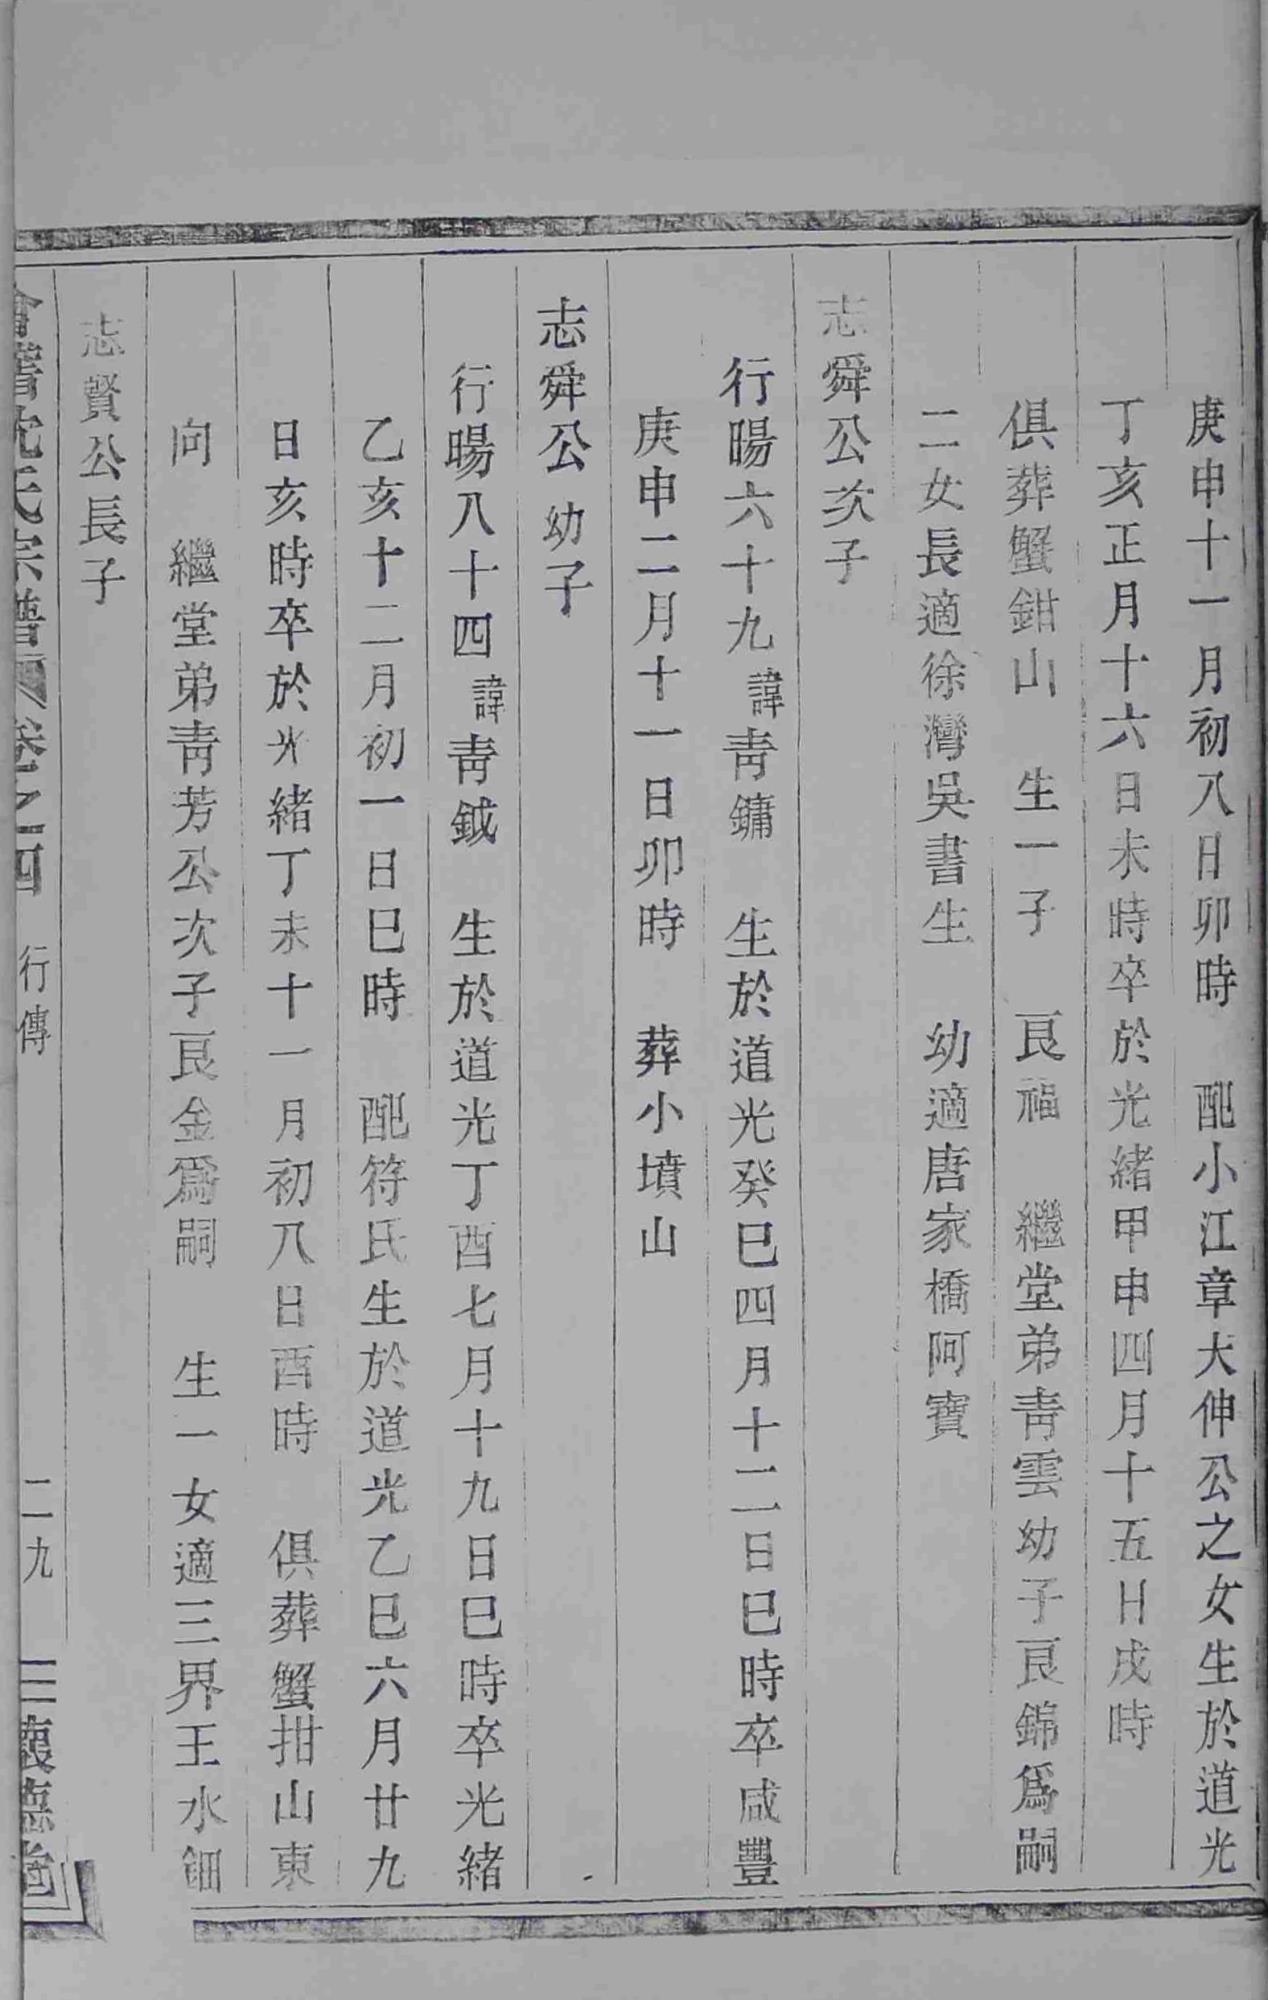 庚申十一月初八日卯時　配小江章大伸公之女生於道光
丁亥正月十六日未時卒於光緒甲申四月十五日戌時
俱葬蟹鉗山　生一子　良福　繼堂弟靑雲幼子良錦爲嗣
二女長適徐灣吳書生　幼適唐家橋阿寶
志舜公次子
行暘六十九諱靑鏞　生於道光癸巳四月十二日巳時卒咸豐
庚申二月十一日卯時　葬小墳山
志舜公幼子
行暘八十四諱靑鉞　生於道光丁酉七月十九日巳時卒光緒
乙亥十二月初一日巳時　配符氏生於道光乙巳六月廿九
日亥時卒於光緒丁未十一月初八日酉時　俱葬蟹拑山東
向　繼堂弟靑芳公次子良金爲嗣　生一女適三界王水鈿
志賢公長子
會稽沈氏宗譜　卷之四　行傳　二九　三懷德堂